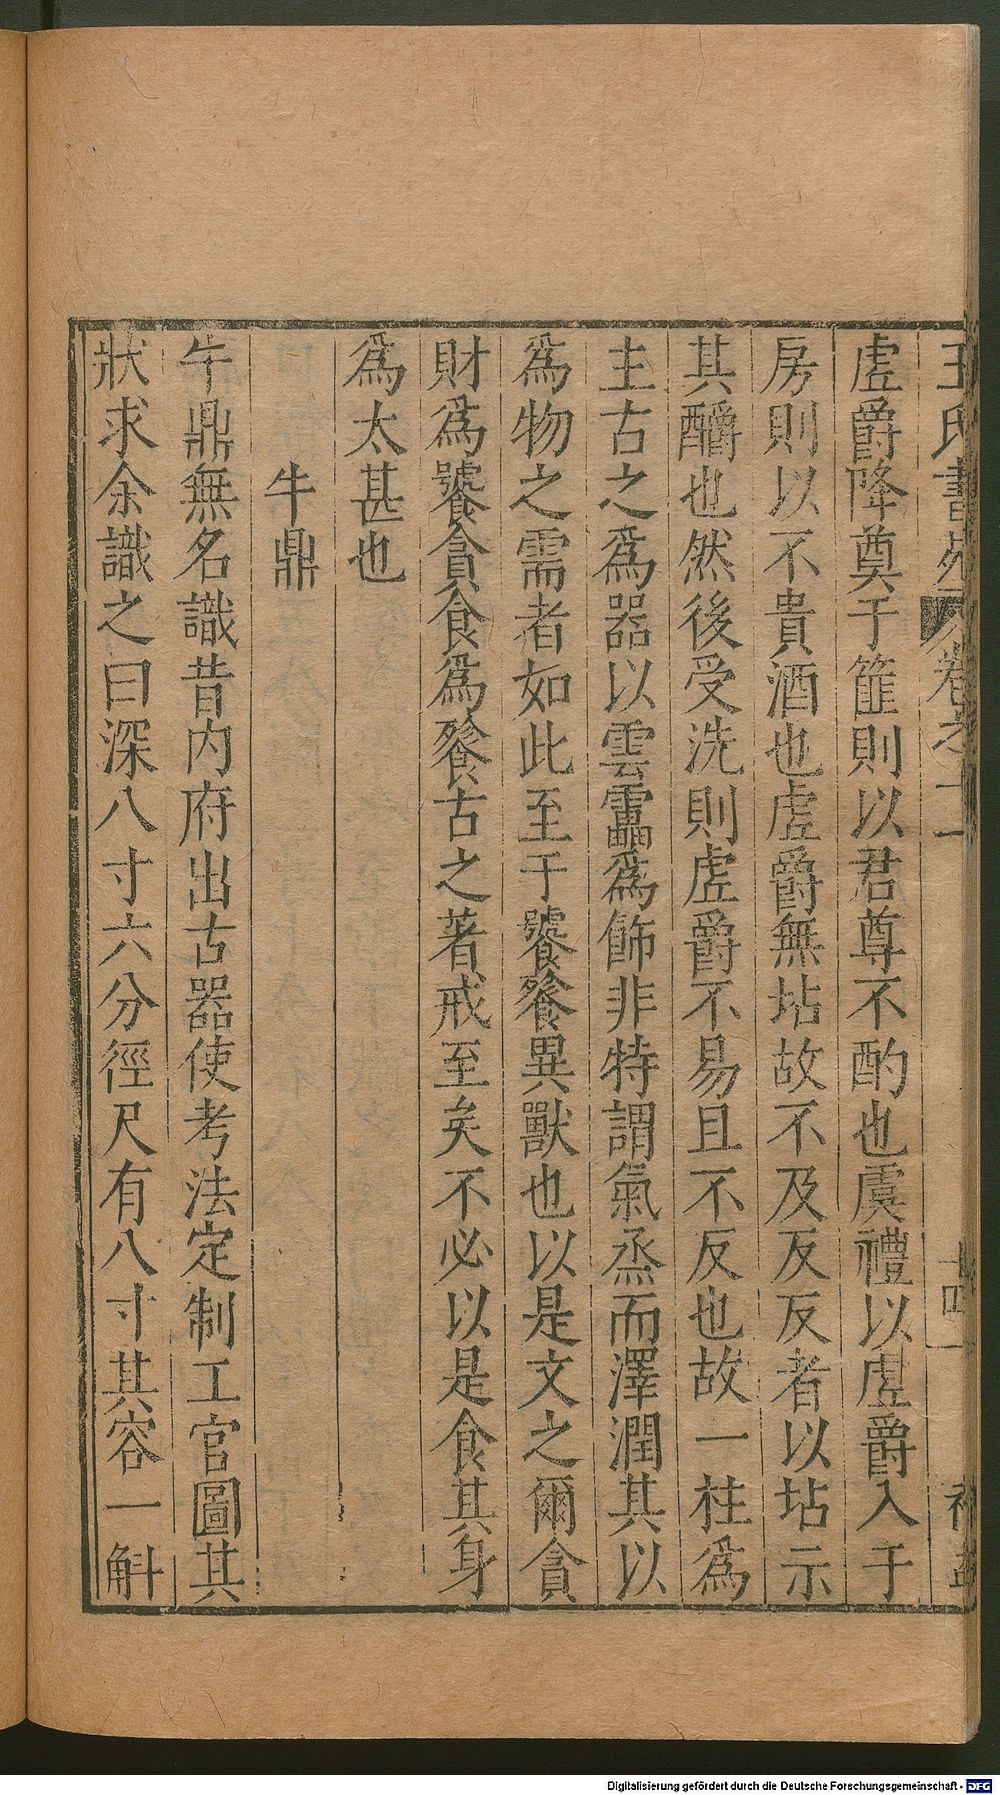 王氏書苑 卷之二 十四
虗爵降奠于篚則以君尊不酌也虞禮以虗爵入于
房則以不貴酒也虗爵無坫故不及反反者以坫示
其釂也然後受洗則虗爵不易且不反也故一柱爲
主古之爲器以雲靁爲飾非特謂氣烝而澤潤其以
爲物之需者如此至于饕餮異獸也以是文之爾貪
財爲饕貪食爲餮古之著戒至矣不必以是食其身
爲太甚也
牛鼎
牛鼎無名識昔内府出古器使考法定制工官圖其
狀求余識之曰深八寸六分徑尺有八寸其容一斛
Digitalisierung gefördert durch die Deutsche Forschungsgemeinschaft - DFG